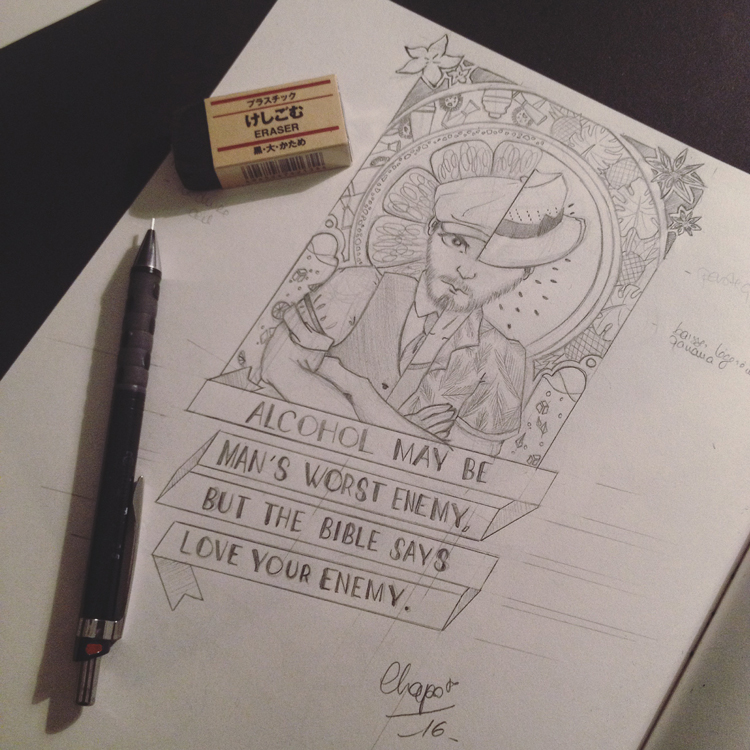 プラスチック
けしごむ
ERASER
黒・大・かため
ALCOHOL MAY BE
MAN'S WORST ENEMY,
BUT THE BIBLE SAYS
LOVE YOUR ENEMY.
Chapo
16